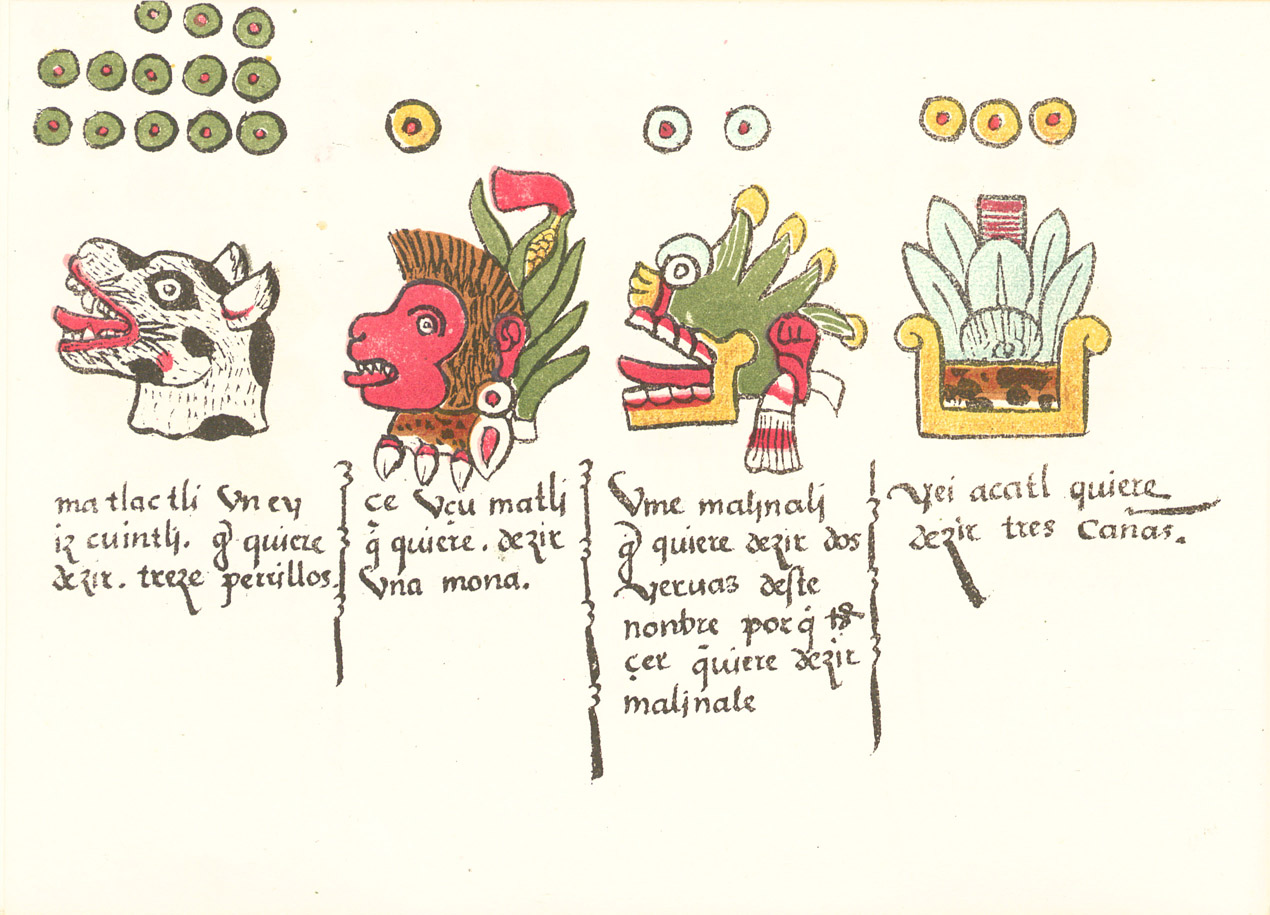 matlactli Vn ey
izcuintlj. q̃ quiere
dezir. treze perrillos.
ce Vçu matlj
q̃ quiere. dezir
Vna mona.
Vme maljnalj
q̃ quiere dezir dos
yeruas deste
nonbre porq̃
çer q̃uiere dezir
maljnale
Yei acatl quiere
dezir tres cañas.